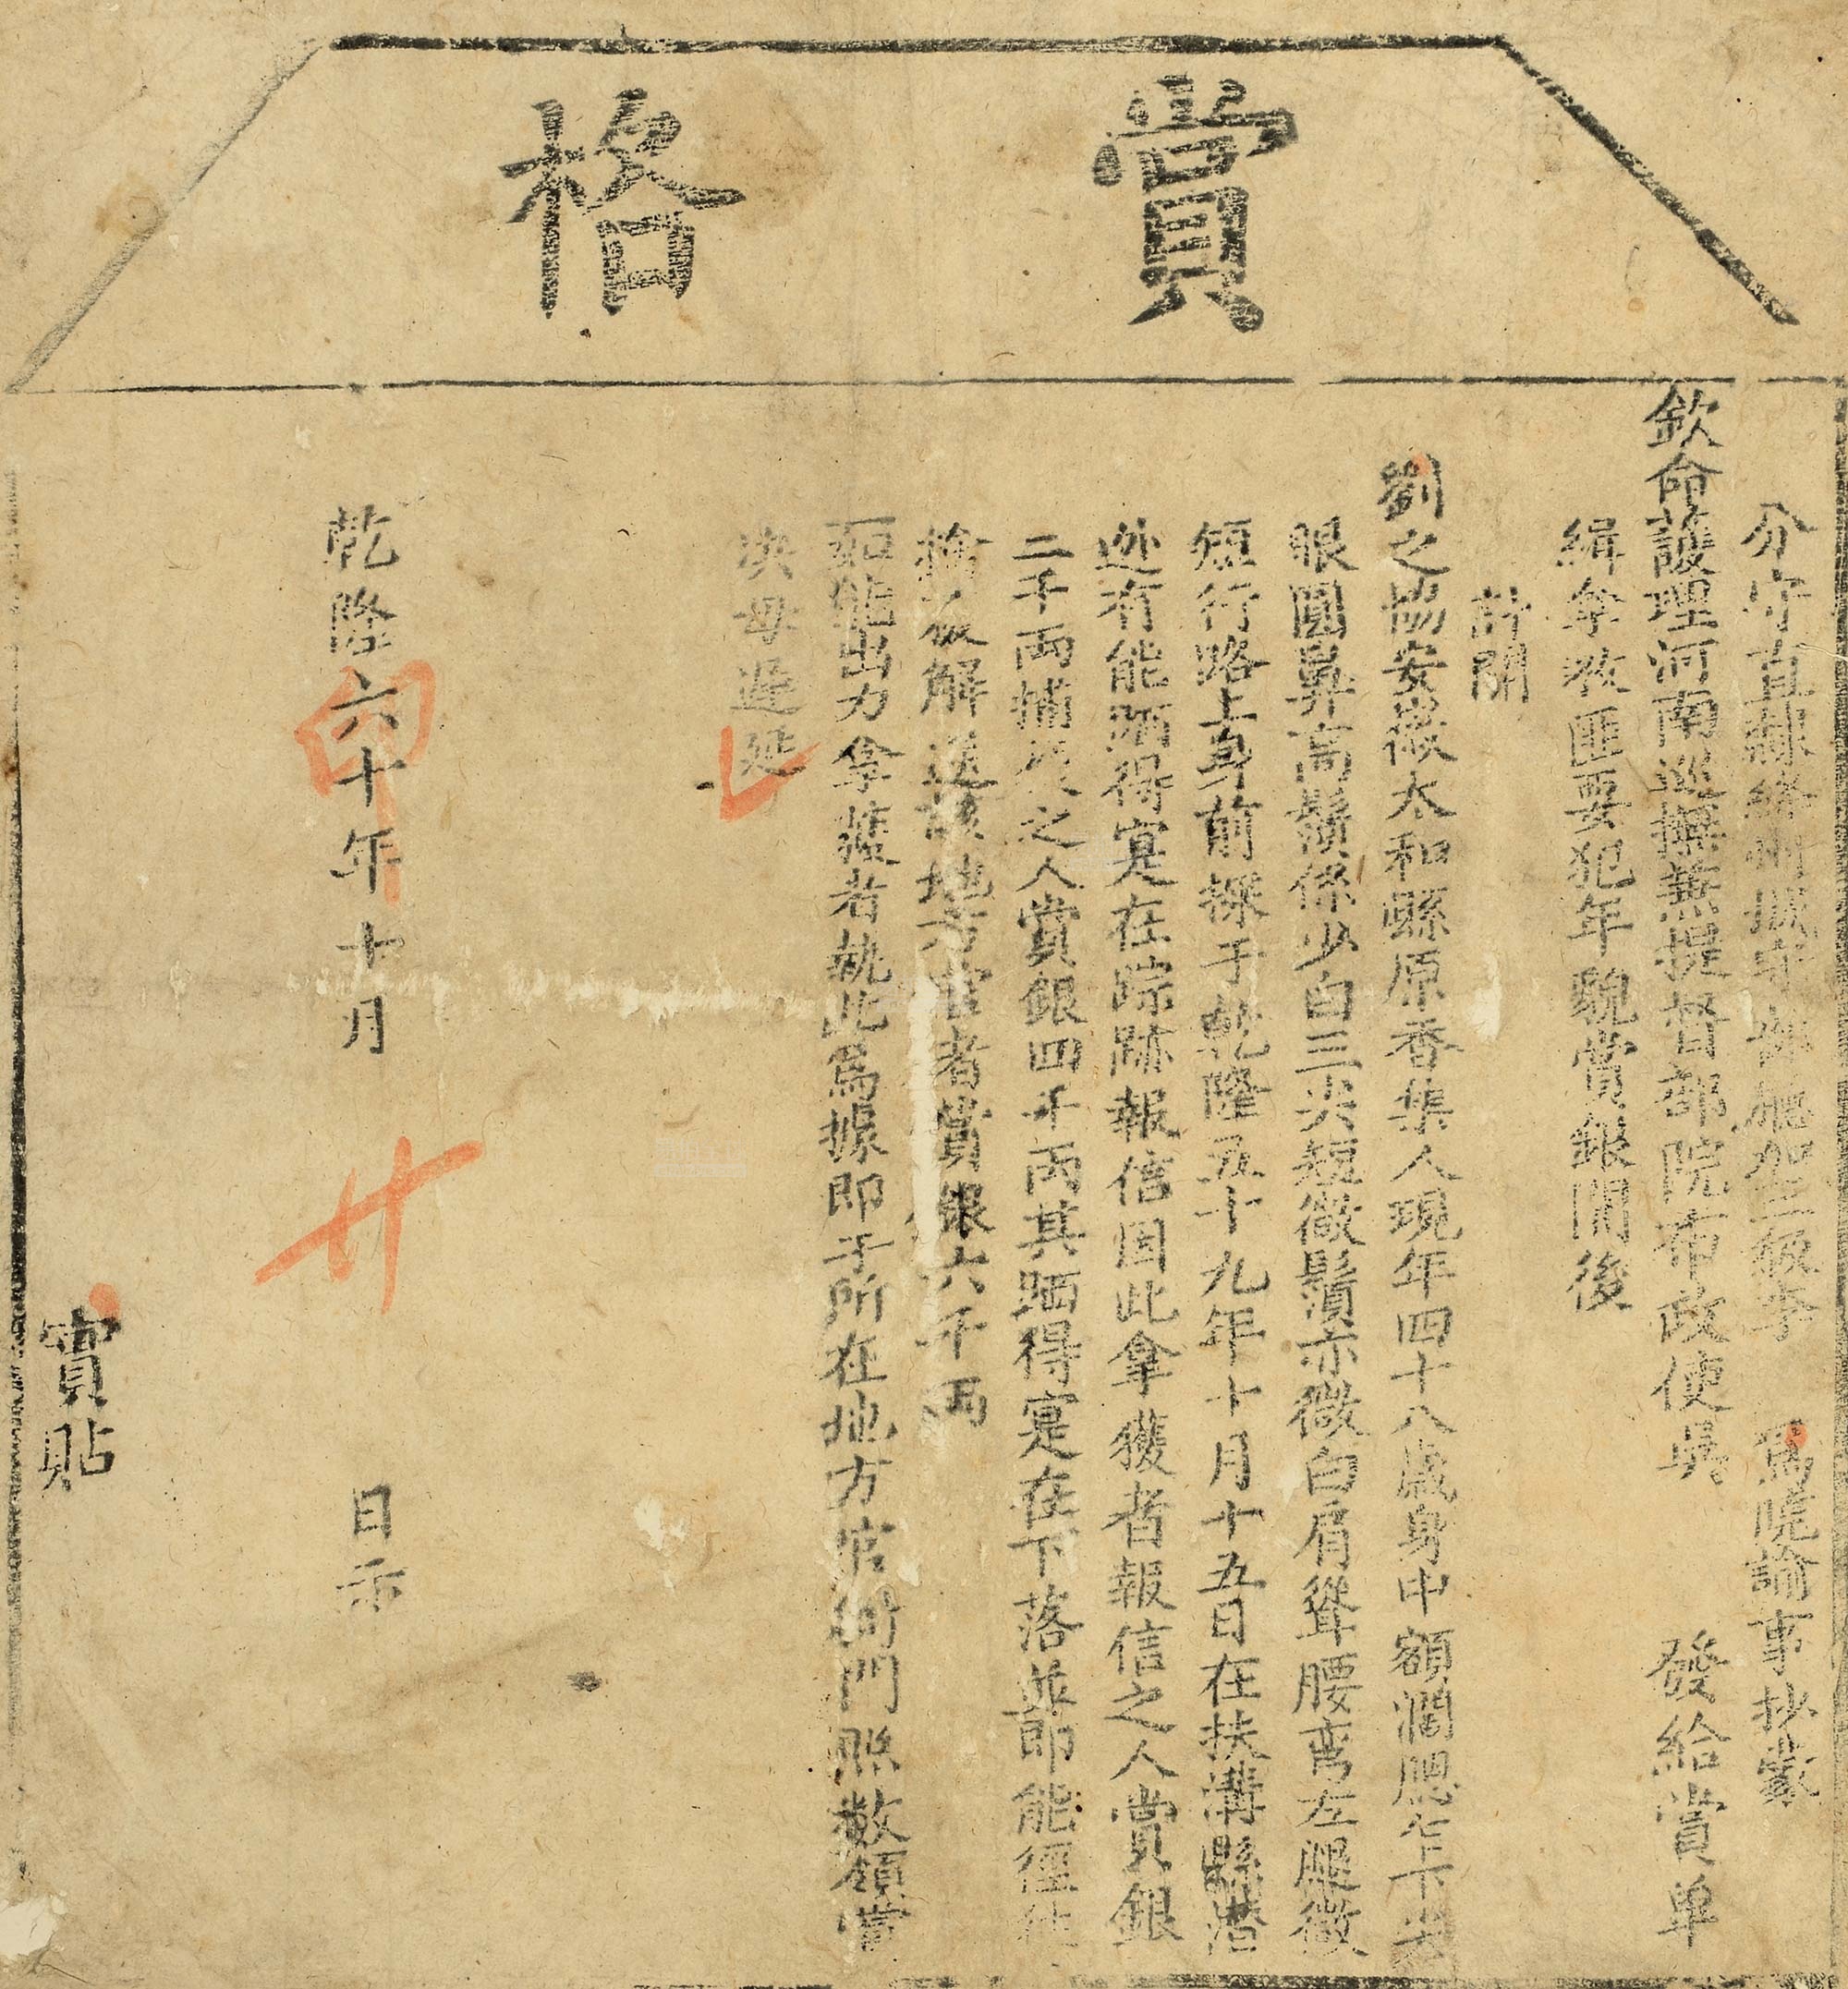 賞格
分守直隸絳州撥守部廳加三級李 爲曉諭事抄蒙
欽命護理河南巡撫兼提督部院布政使吳 發給賞单
緝拿敎匪要犯年貌賞銀開後
計開
劉之協安徽太和縣原香集人現年四十八歳身中額濶腮乍下尖
眼圓鼻高鬚係少白三尖短微鬚亦微白肩聳腰弯左腿微
短行路上身前探于乾隆五十九年十月十五日在扶溝縣潜
逃有能晒得寔在踪跡報信因此拿獲者報信之人賞銀
二千両捕役之人賞銀四千両其晒得寔在下落並即能徑往
擒获解送該地方官者賞銀六千両
如能出力拿獲者執此爲據即于所在地方官衙門照数領賞
决毋遲延
乾隆六十年十月 廿 日示
印
實貼